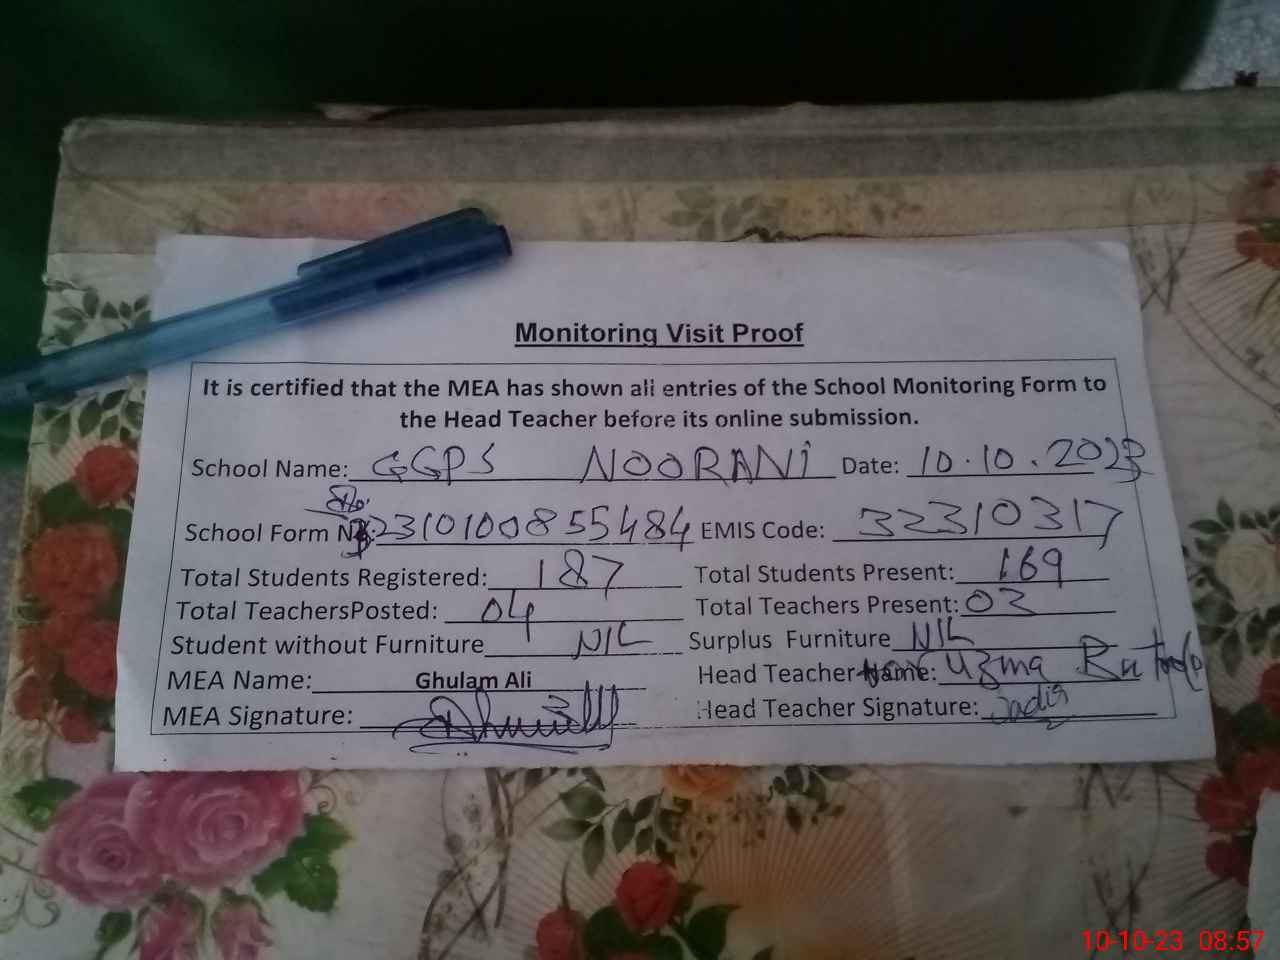 Monitoring Visit Proof
It is certified that the MEA has shown all entries of the School Monitoring Form to
the Head Teacher before its online submission.
School Name: GGPS NOORANI Date: 10.10.2023
School Form 23101008 55484 EMIS Code: 32310317
Total Students Registered: 187 Total Students Present: 169
Total TeachersPosted: 04 Total Teachers Present: 03
Student without Furniture NIL Surplus Furniture NIL
MEA Name: Ghulam Ali Head Teacher Name: Uzma
MEA Signature: Head Teacher Signature:
10-10-23 08:57